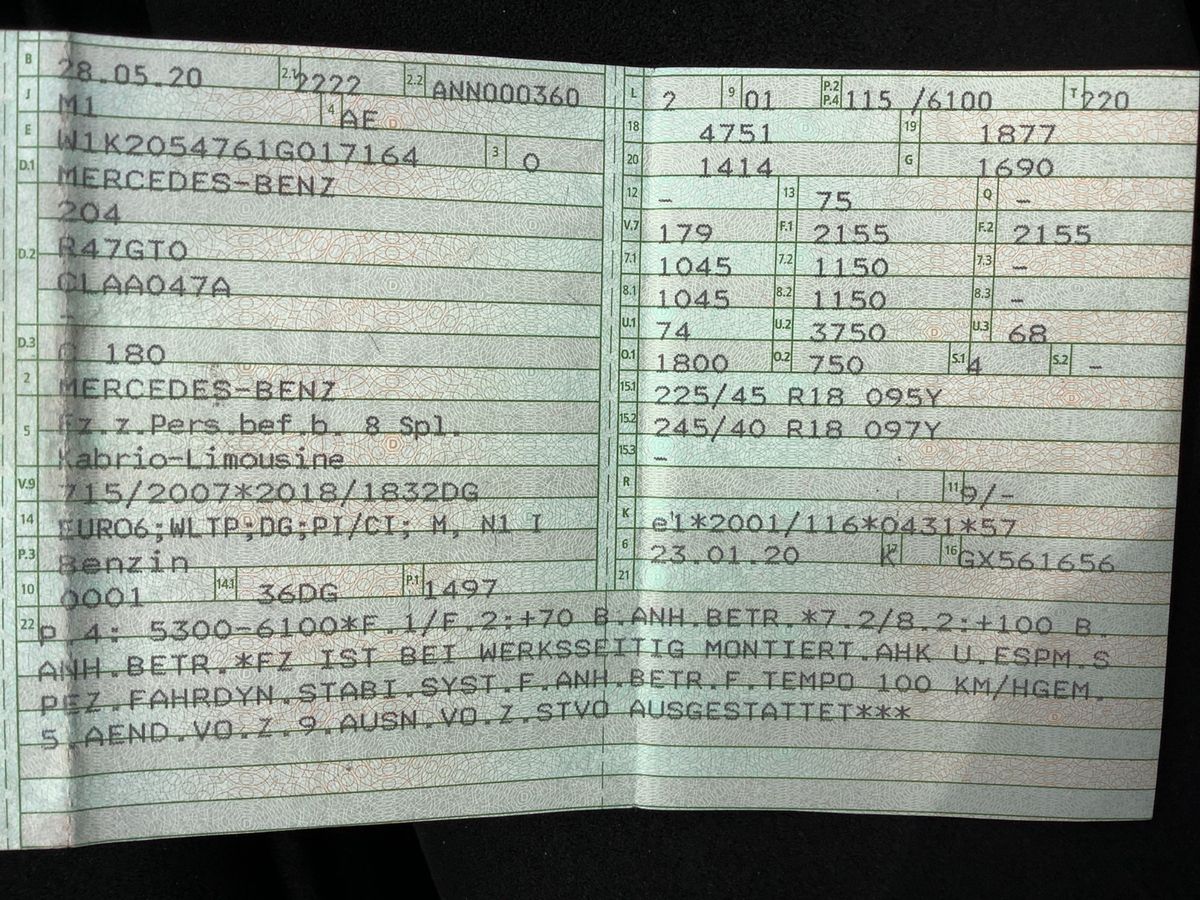 B 28.05.20 2.1 2222 2.2 ANN000360
J M1 4 AE
E W1K2054761G017164 3 0
D.1 MERCEDES-BENZ
204
D.2 R47GT0
CLAA047A
-
D.3 180
2 MERCEDES-BENZ
5 Fz.z.Pers.bef.b. 8 Spl.
Kabrio-Limousine
V.9 715/2007*2018/1832DG
14 EURO6;WLTP;DG;PI/CI; M, N1 I
P.3 Benzin
10 0001 14.1 36DG P.1 1497
L 2 9 01 P.2 P.4 115 /6100 T 220
18 4751 19 1877
20 1414 G 1690
12 - 13 75 Q -
V.7 179 F.1 2155 F.2 2155
7.1 1045 7.2 1150 7.3 -
8.1 1045 8.2 1150 8.3 -
U.1 74 U.2 3750 U.3 68
O.1 1800 O.2 750 S.1 4 S.2 -
15.1 225/45 R18 095Y
15.2 245/40 R18 097Y
15.3 -
R 11 9/-
K e1*2001/116*0431*57
6 23.01.20 17 K 16 GX561656
21
22 P.4: 5300-6100*F.1/F.2:+70 B.ANH.BETR.*7.2/8.2:+100 B.
ANH.BETR.*FZ IST BEI WERKSSEITIG MONTIERT.AHK U.ESPM.S
PEZ.FAHRDYN.STABI.SYST.F.ANH.BETR.F.TEMPO 100 KM/HGEM.
5.AEND.VO.Z.9.AUSN.VO.Z.STVO AUSGESTATTET***